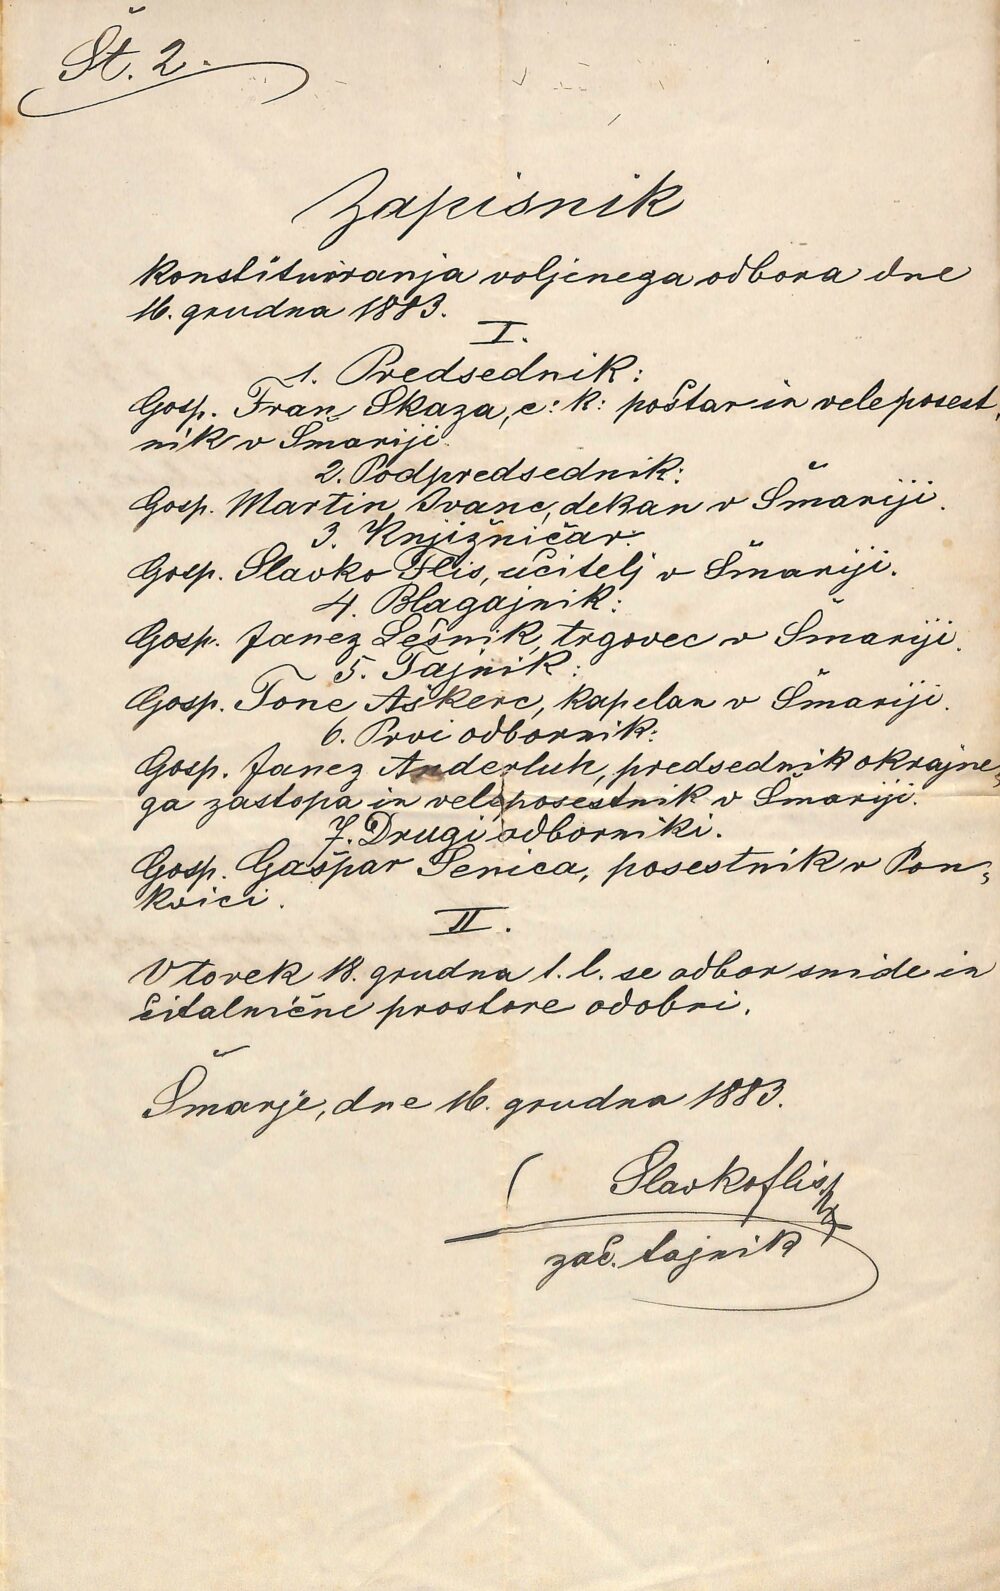 Št. 2.
Zapisnik
konstituiranja voljenega odbora dne
16. grudna 1883.
I.
1. Predsednik:
Gosp. Fran Skaza, c: k: poštar in veleposest,
nik v Šmariji.
2. Podpredsednik:
Gosp. Martin Ivanc, dekan v Šmariji.
3. Knjižničar:
Gosp. Slavko Flis, učitelj v Šmariji.
4. Blagajnik:
Gosp. Janez Lešnik, trgovec v Šmariji.
5. Tajnik:
Gosp. Tone Aškerc, kapelan v Šmariji.
6. Prvi odbornik:
Gosp. Janez Anderluh, predsednik okrajne,
ga zastopa in veleposestnik v Šmariji.
7. Drugi odborniki.
Gosp. Gašpar Senica, posestnik v Pon,
kvici.
II.
V torek 18. grudna t. l. se odbor snide in
čitalnične prostore odobri.
Šmarje, dne 16. grudna 1883.
Slavko Flis
zač. tajnik